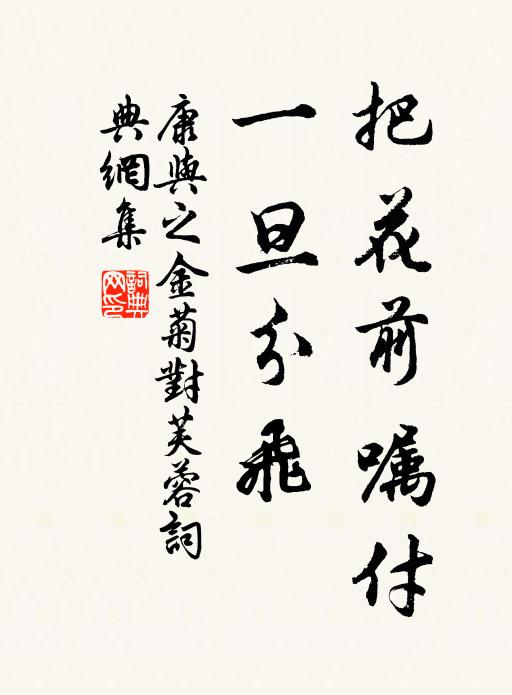 把花前嘱付
一旦分飛
康與之金菊對芙蓉詞
典網集
詞典
网印